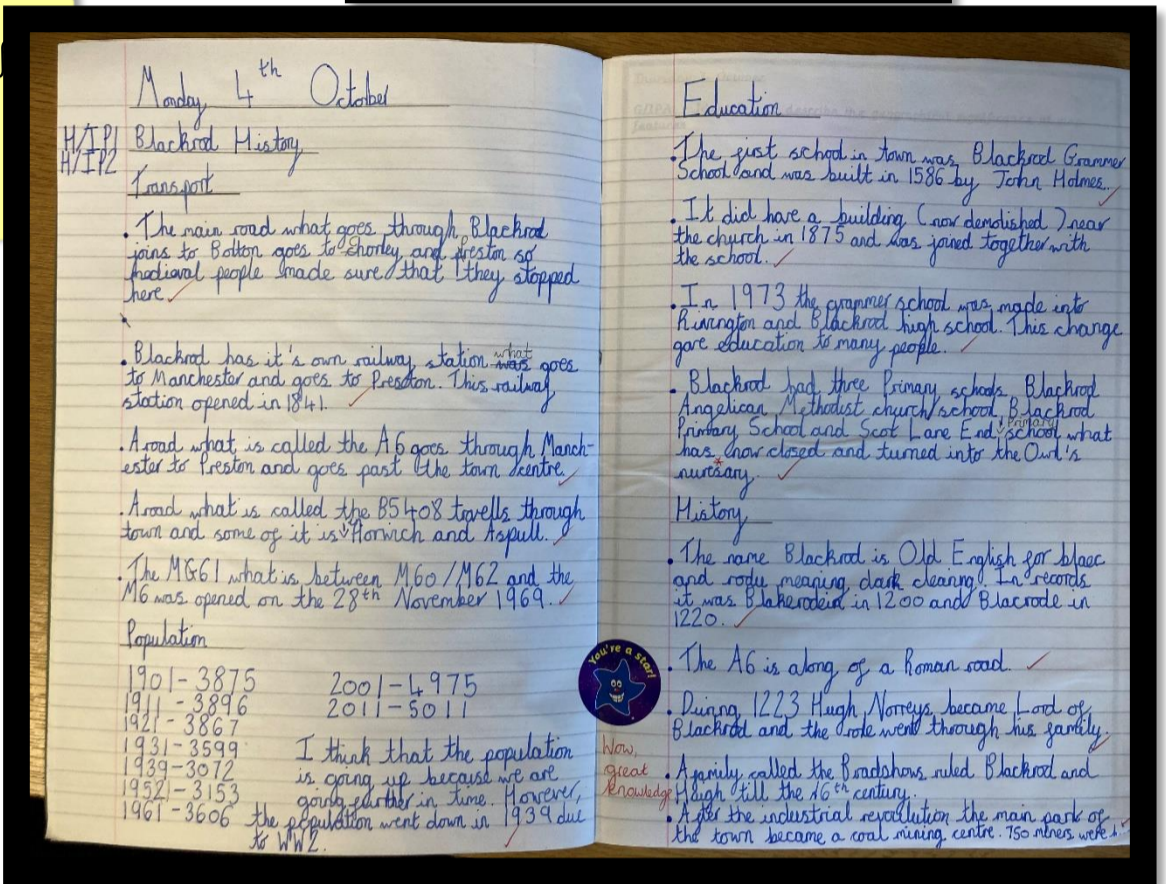 Monday 4th October
H/IP1
H/IP2
Blackrod History
Transport
. The main road what goes through Blackrod
joins to Bolton goes to Chorley and Preston so
medieval people made sure that they stopped
here
. Blackrod has it's own railway station what goes
to Manchester and goes to Preston. This railway
station opened in 1841.
. A road what is called the A6 goes through Manch-
ester to Preston and goes past the town centre.
. A road what is called the B5408 travells through
town and some of it is Horwich and Aspull.
. The M61 what is between M60/M62 and the
M6 was opened on the 28th November 1969.
Population
1901-3875
1911-3896
1921-3867
1931-3599
1939-3072
1952-3153
1961-3606
2001-4975
2011-5011
I think that the population
is going up because we are
going further in time. However,
the population went down in 1939 due
to WW2.
Education
. The first school in town was Blackrod Grammer
School and was built in 1586 by John Holmes.
. It did have a building (now demolished) near
the church in 1875 and was joined together with
the school.
. In 1973 the grammer school was made into
Rivington and Blackrod high school. This change
gave education to many people.
. Blackrod had three Primary schools Blackrod
Angelican Methodist church school Blackrod
Primary School and Scot Lane End Primary school what
has now closed and turned into the Owl's
nursary.
History
. The name Blackrod is Old English for blaec
and rodu meaning dark clearing. In records
it was Blakerode in 1200 and Blacrode in
1220.
. The A6 is along of a Roman road.
You're a star!
. During 1223 Hugh Norreys became Lord of
Blackrod and the role went through his family.
Wow,
great
knowledge
. A family called the Bradshaws ruled Blackrod and
Haigh till the 16th century.
. After the industrial revoulution the main park of
the town became a coal mining centre. 750 miners were